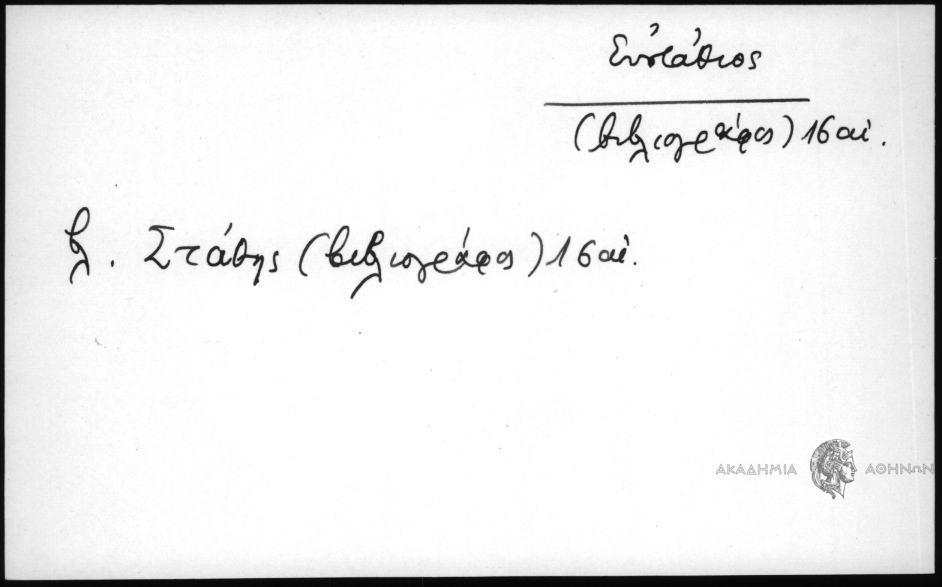 Εὐστάθιος
(βιβλιογράφος) 16 αἰ.
βλ. Στάθης (βιβλιογράφος) 16 αἰ.
ΑΚΑΔΗΜΙΑ ΑΘΗΝΩΝ